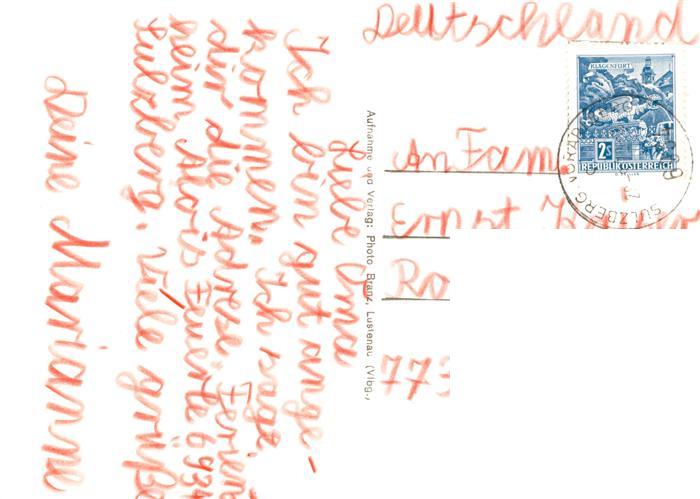 Liebe Oma
Ich bin gut ange-
kommen. Ich sage
dir die Adrese. Ferien
heim Alois Feuerle 6934
Sulzberg. Viele grüße
Deine Marianne
Aufnahme und Verlag: Photo Branz, Lustenau (Vlbg.,
Deutschland
An Fam
Ernst
Ro
773
KLAGENFURT
2S
REPUBLIK ÖSTERREICH
SULZBERG